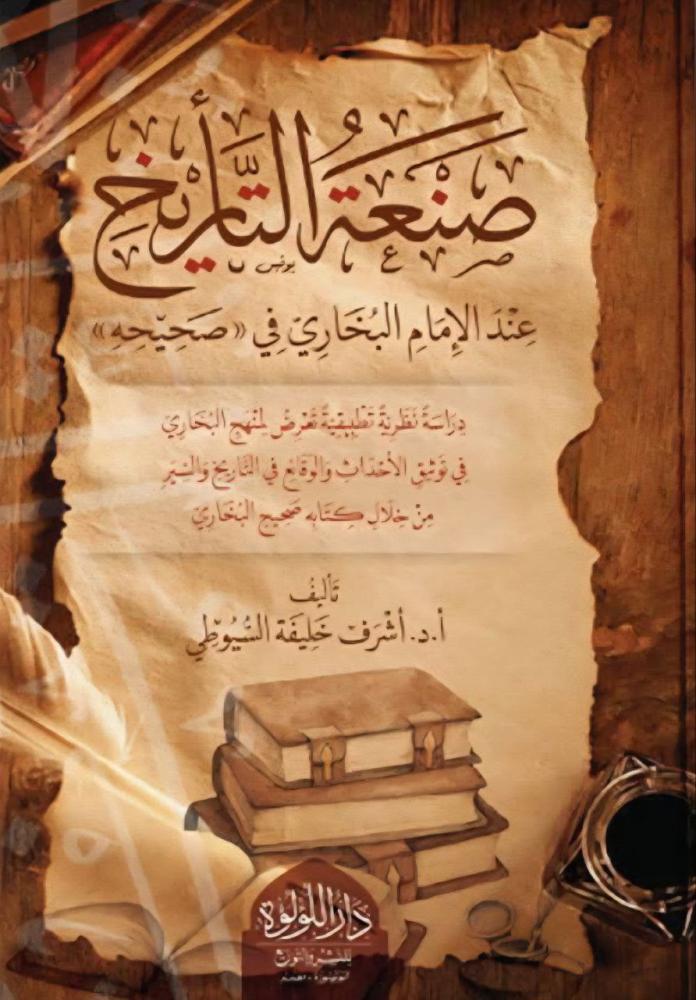 صَنْعَةُ التَّأْرِيخِ
عِنْدَ الإِمَامِ البُخَارِيّ فِي «صَحِيْحِهِ»
دِرَاسَةٌ نَظَرِيَّةٌ تَطْبِيْقِيَّةٌ تَعْرِضُ لِمَنْهَجِ البُخَارِيّ
فِي تَوْثِيقِ الأَحْدَاثِ وَالوَقَائِعِ فِي التَّارِيخِ وَالسِّيَرِ
مِنْ خِلَالِ كِتَابِهِ صَحِيحِ البُخَارِيّ
تَأْلِيفُ
أ.د. أَشْرَف خَلِيفَة السُّيُوطِي
دَارُ اللُّؤلُؤة
للنشر والتوزيع
المنصورة - مصر